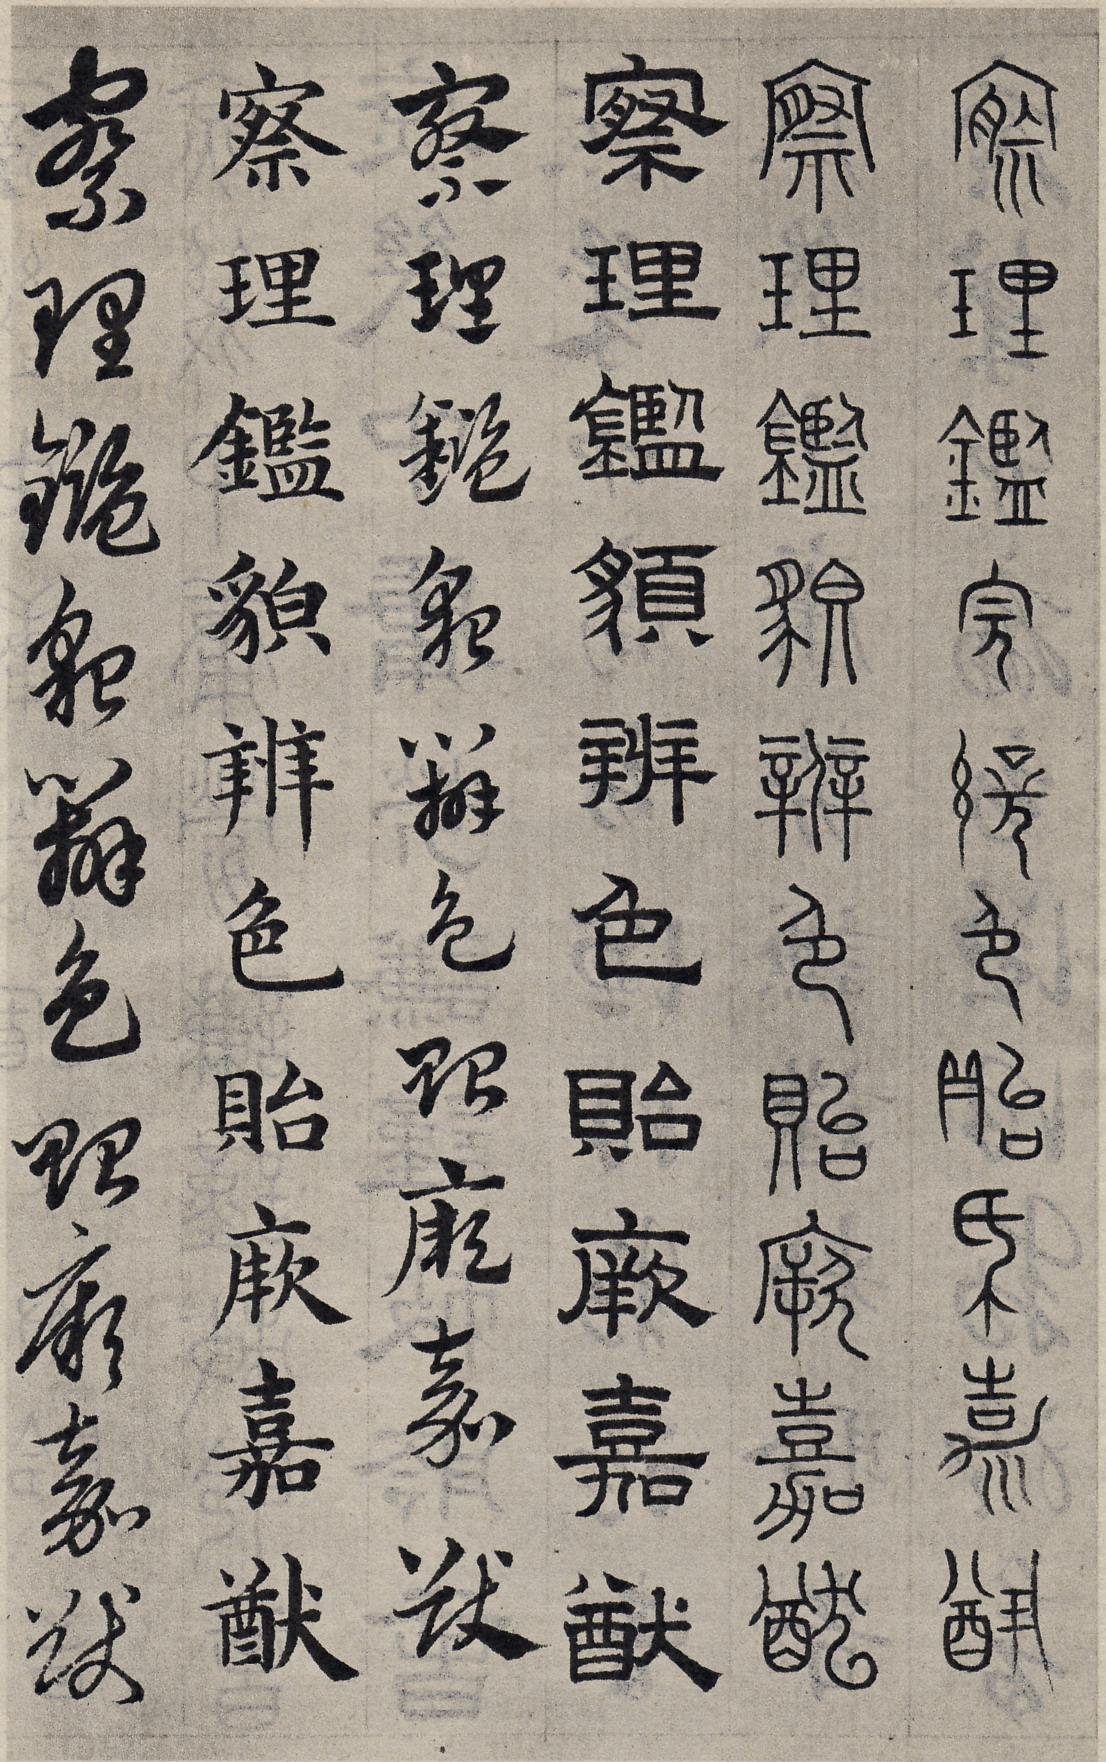 察理鑑皃辨色貽厥嘉猷
察理鑑貌辨色貽厥嘉猷
察理鑑貌辨色貽厥嘉猷
察理鑑貌辨色貽厥嘉猷
察理鑑貌辨色貽厥嘉猷
察理鑑貌辨色貽厥嘉猷